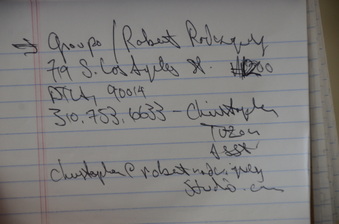 ⇒ Groupo / Robert Rodriguez
719 S. Los Angeles St. #1200
DTLA, 90014
310.753.6633 - Christopher
Asst
christopher@robertrodriguez
studio.com